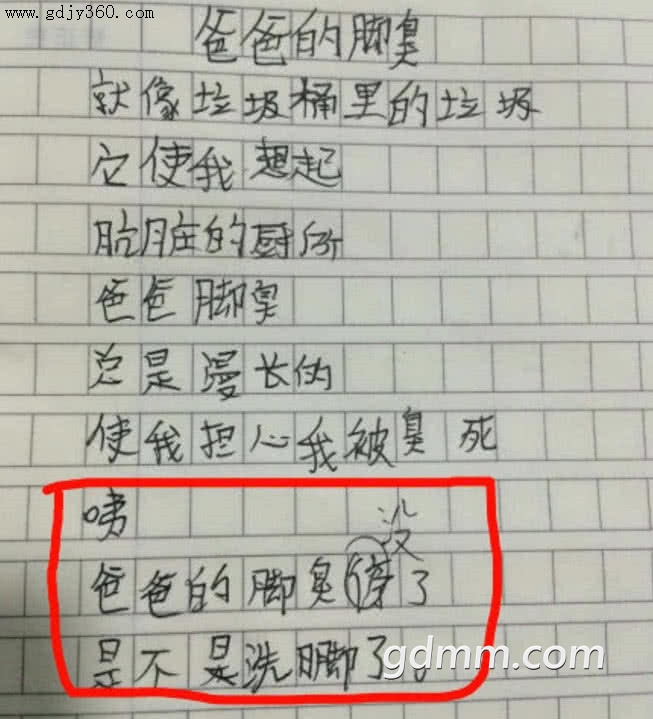 www.gdjy360.com
爸爸的脚臭
就像垃圾桶里的垃圾
它使我想起
肮脏的厨所
爸爸脚臭
总是漫长的
使我担心我被臭死
咦
没
爸爸的脚臭停了
是不是洗脚了。
gdmm.com